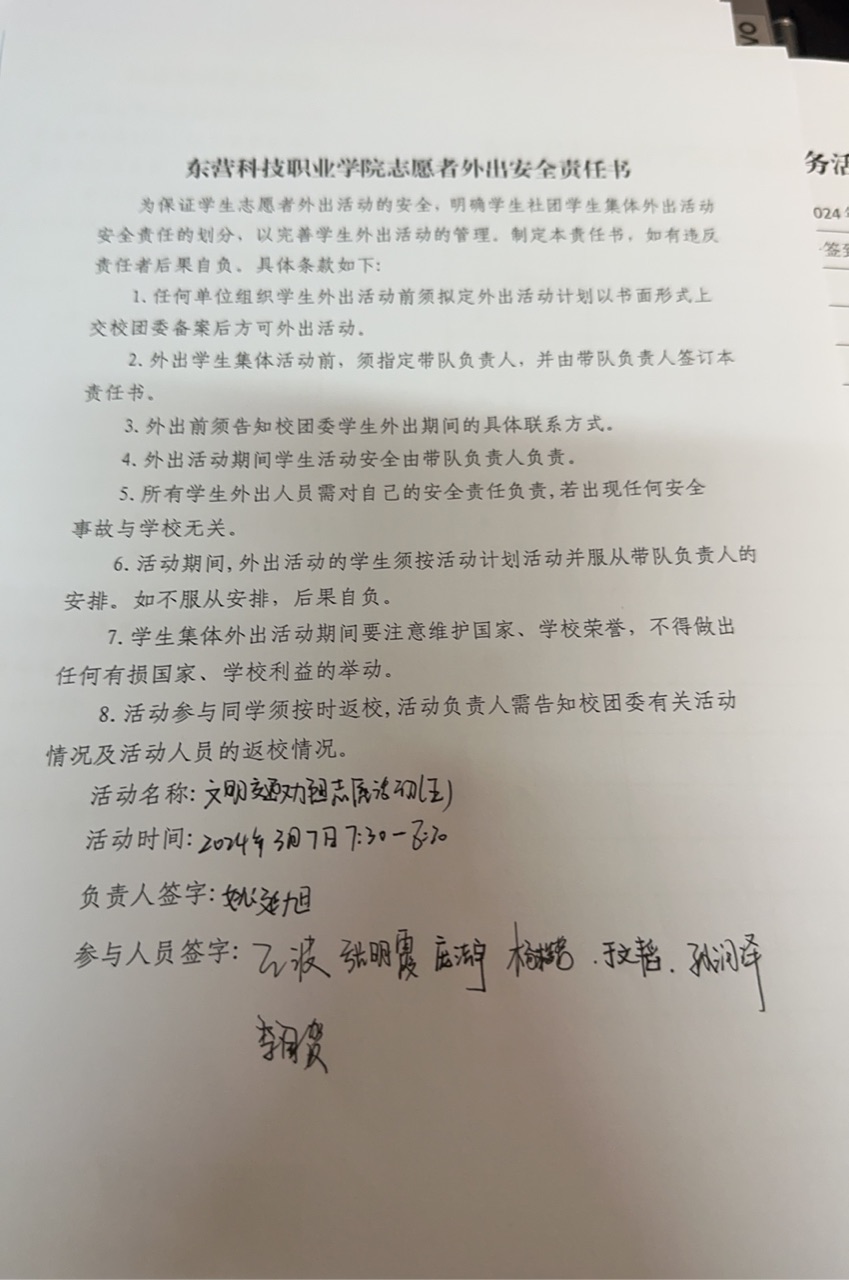 东营科技职业学院志愿者外出安全责任书
为保证学生志愿者外出活动的安全，明确学生社团学生集体外出活动
安全责任的划分，以完善学生外出活动的管理。制定本责任书，如有违反
责任者后果自负。具体条款如下：
1. 任何单位组织学生外出活动前须拟定外出活动计划以书面形式上
交校团委备案后方可外出活动。
2. 外出学生集体活动前，须指定带队负责人，并由带队负责人签订本
责任书。
3. 外出前须告知校团委学生外出期间的具体联系方式。
4. 外出活动期间学生活动安全由带队负责人负责。
5. 所有学生外出人员需对自己的安全责任负责,若出现任何安全
事故与学校无关。
6. 活动期间,外出活动的学生须按活动计划活动并服从带队负责人的
安排。如不服从安排，后果自负。
7. 学生集体外出活动期间要注意维护国家、学校荣誉，不得做出
任何有损国家、学校利益的举动。
8. 活动参与同学须按时返校,活动负责人需告知校团委有关活动
情况及活动人员的返校情况。
活动名称: 文明交通劝阻志愿活动(五)
活动时间: 2024年3月7日 7:30—8:30
负责人签字: 姚延旭
参与人员签字: 张明霞 于文哲. 孙润泽
务活
024
签到